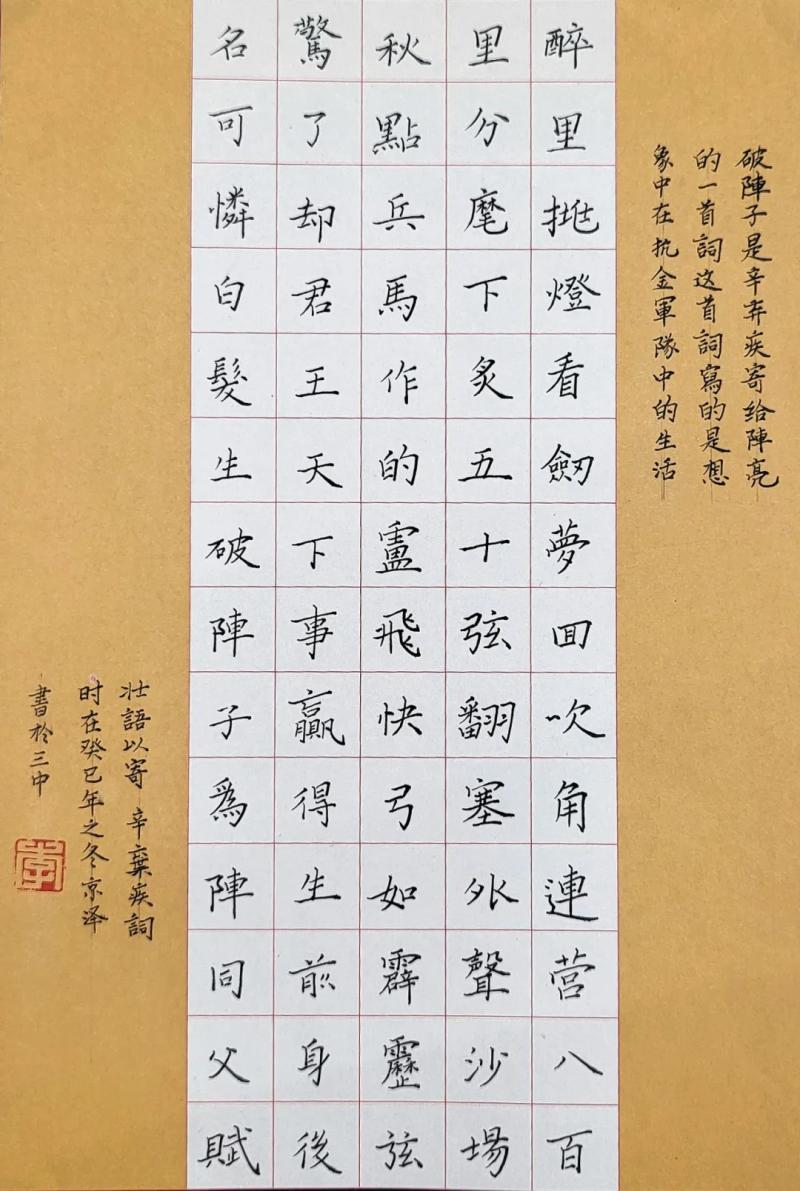 破陣子是辛弃疾寄给陣亮
的一首詞这首詞寫的是想
象中在抗金軍隊中的生活
醉里挑燈看劒夢囬吹角連营八百
里分麾下炙五十弦翻塞外聲沙場
秋點兵馬作的盧飛快弓如霹靂弦
驚了却君王天下事贏得生前身後
名可憐白髮生破陣子爲陣同父賦
壮語以寄 辛棄疾詞
时在癸巳年之冬京泽
書於三中